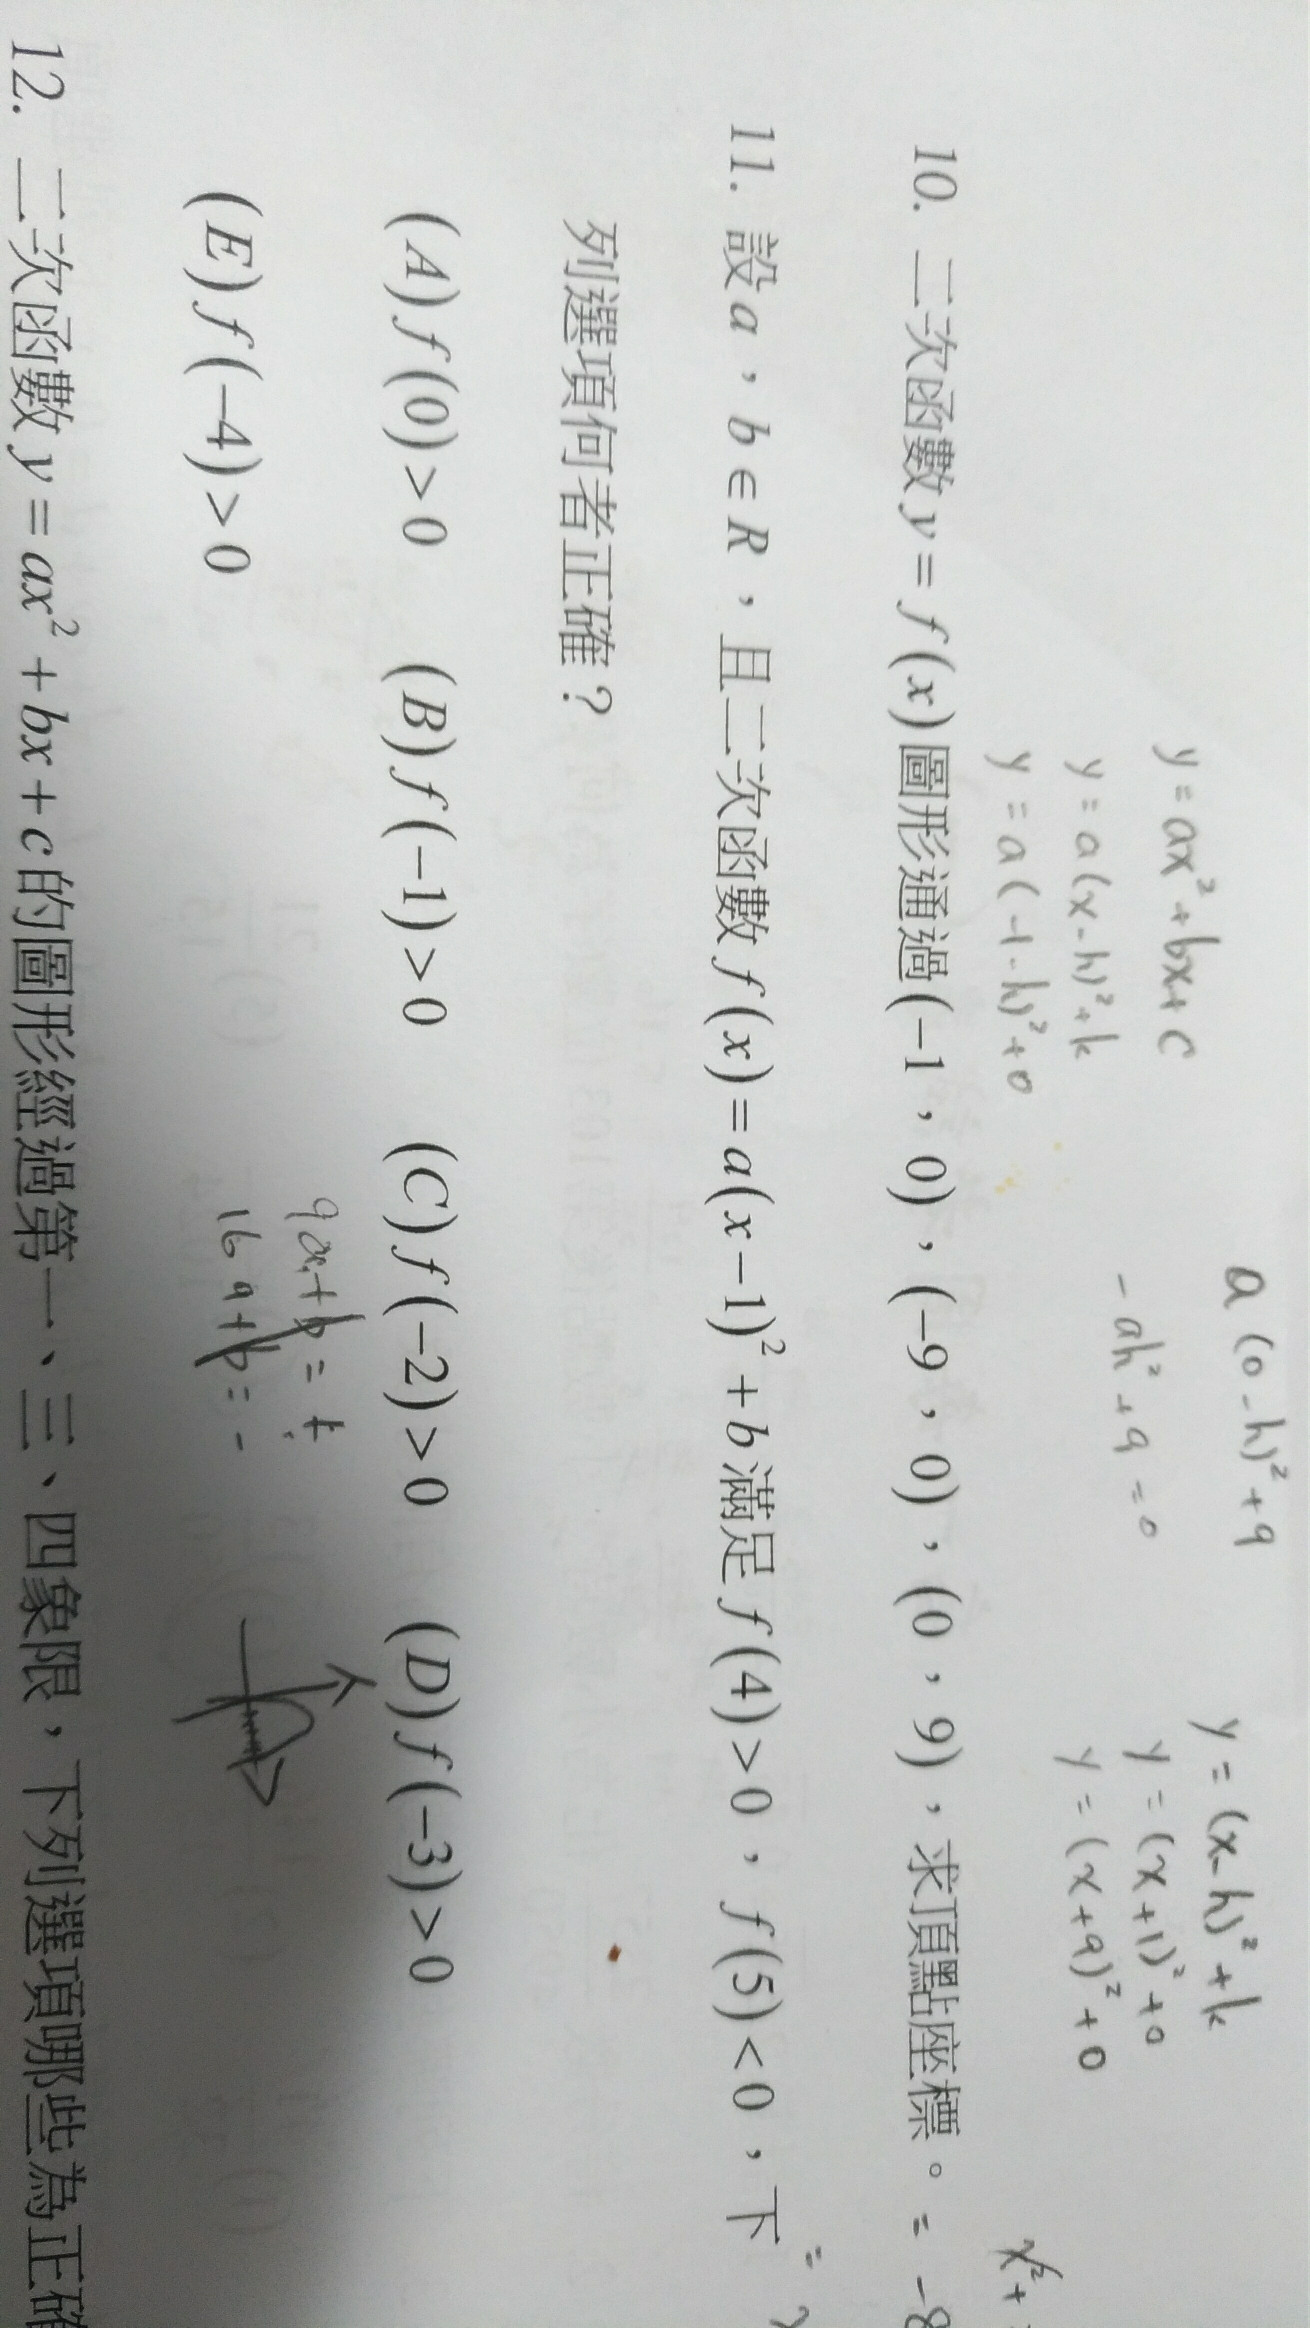 y = ax² + bx + c
y = a(x-h)² + k
y = a(-1-h)² + 0
a(0-h)² + 9
-ah² + 9 = 0
y = (x-h)² + k
y = (x+1)² + 0
y = (x+9)² + 0
x² +
10. 二次函數 y = f(x) 圖形通過(-1，0)，(-9，0)，(0，9)，求頂點座標。 = -8
11. 設 a，b ∈ R，且二次函數 f(x) = a(x-1)² + b 滿足 f(4) > 0，f(5) < 0，下
列選項何者正確？
(A) f(0) > 0 (B) f(-1) > 0 (C) f(-2) > 0 (D) f(-3) > 0
(E) f(-4) > 0
9a + b = +
16a + b = -
12. 二次函數 y = ax² + bx + c 的圖形經過第一、三、四象限，下列選項哪些為正確